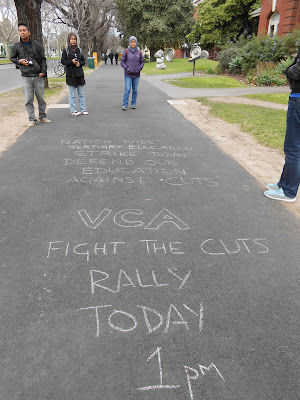 NATION WIDE
TERTIARY EDUCATION
STRIKE TODAY
DEFEND OUR
EDUCATION
AGAINST CUTS
VCA
FIGHT THE CUTS
RALLY
TODAY
1pm